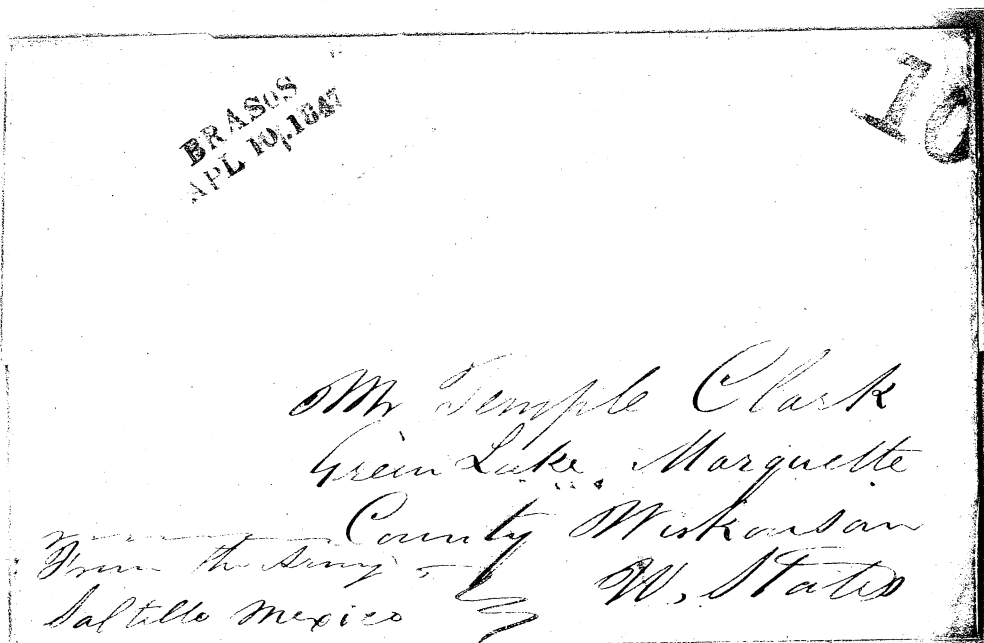 BRASOS
APL 10, 1847
10
Mr Temple Clark
Green Lake Marquette
County Wiskonsan
U, States
From the Army
Saltillo Mexico